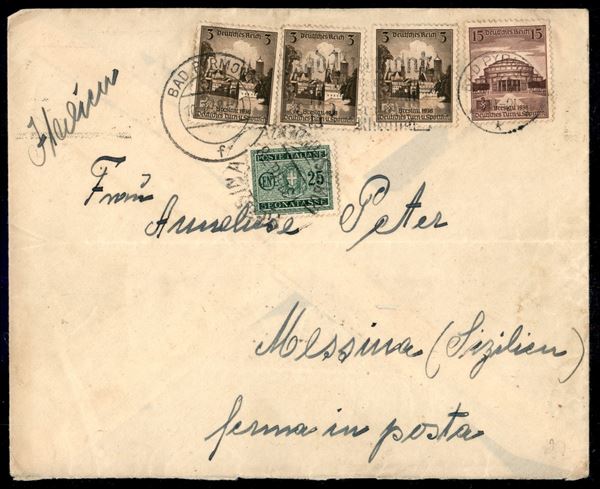 3 Deutsches Reich 3
3 Deutsches Reich 3
3 Deutsches Reich 3
15 Deutsches Reich 15
Breslau 1938
Deutsches Turn u. Sportfest
Breslau 1938
Deutsches Turn u. Sportfest
Breslau 1938
Deutsches Turn u. Sportfest
Breslau 1938
Deutsches Turn u. Sportfest
BAD PYRMONT
f
BAD PYRMONT
k
Italien
POSTE ITALIANE
CENT. 25
SEGNATASSE
MESSINA
Frau
Anneliese Peter
Messina (Sizilien)
ferma in posta